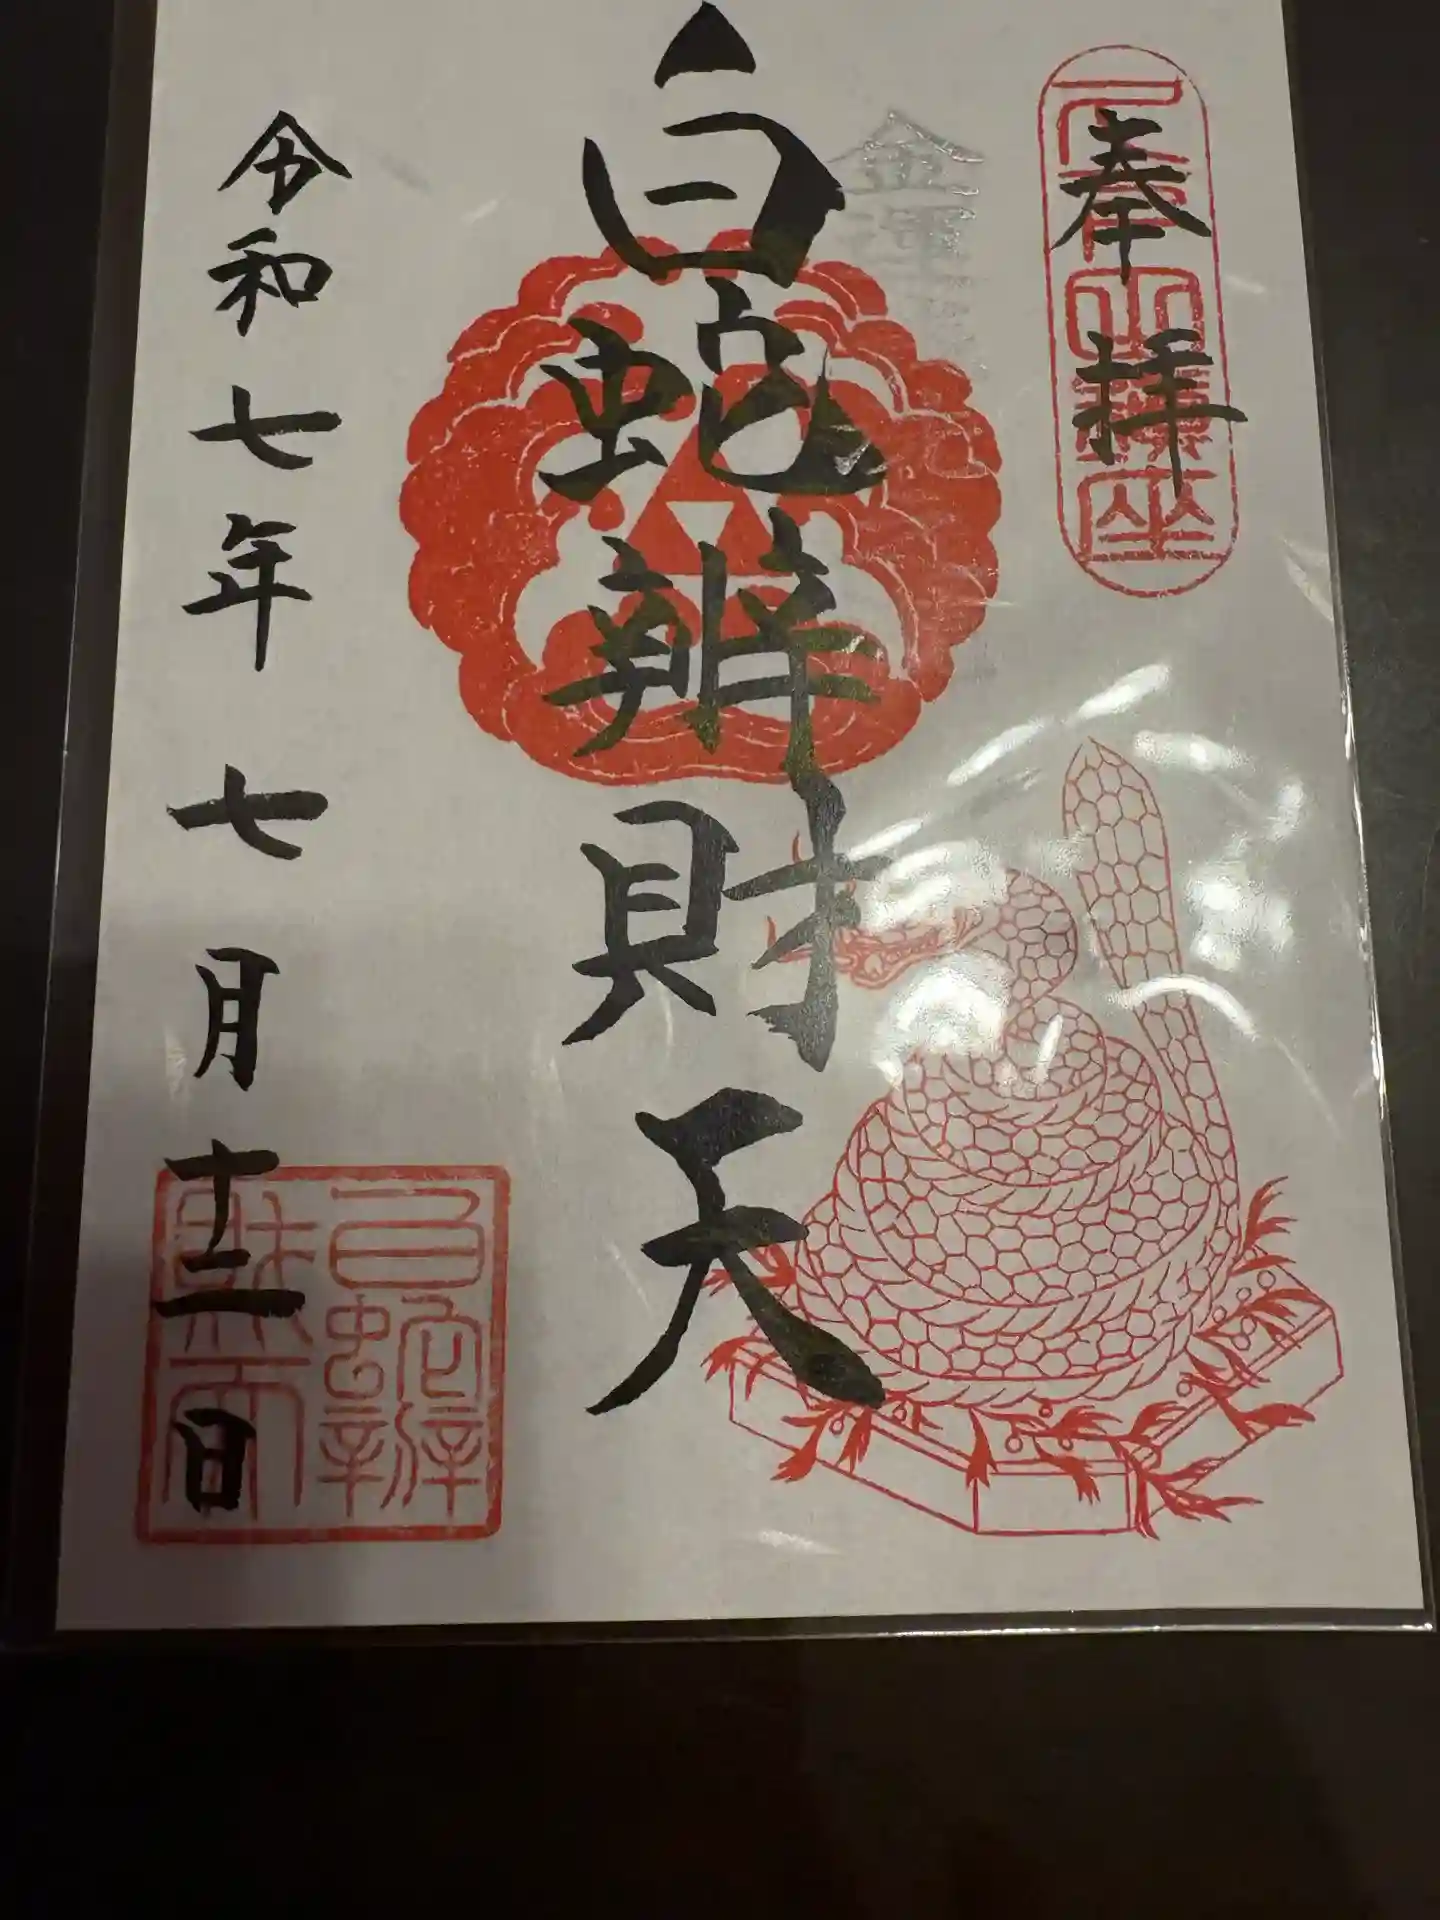 奉拝
白蛇辨財天
令和七年七月十二日
白蛇辨
財天